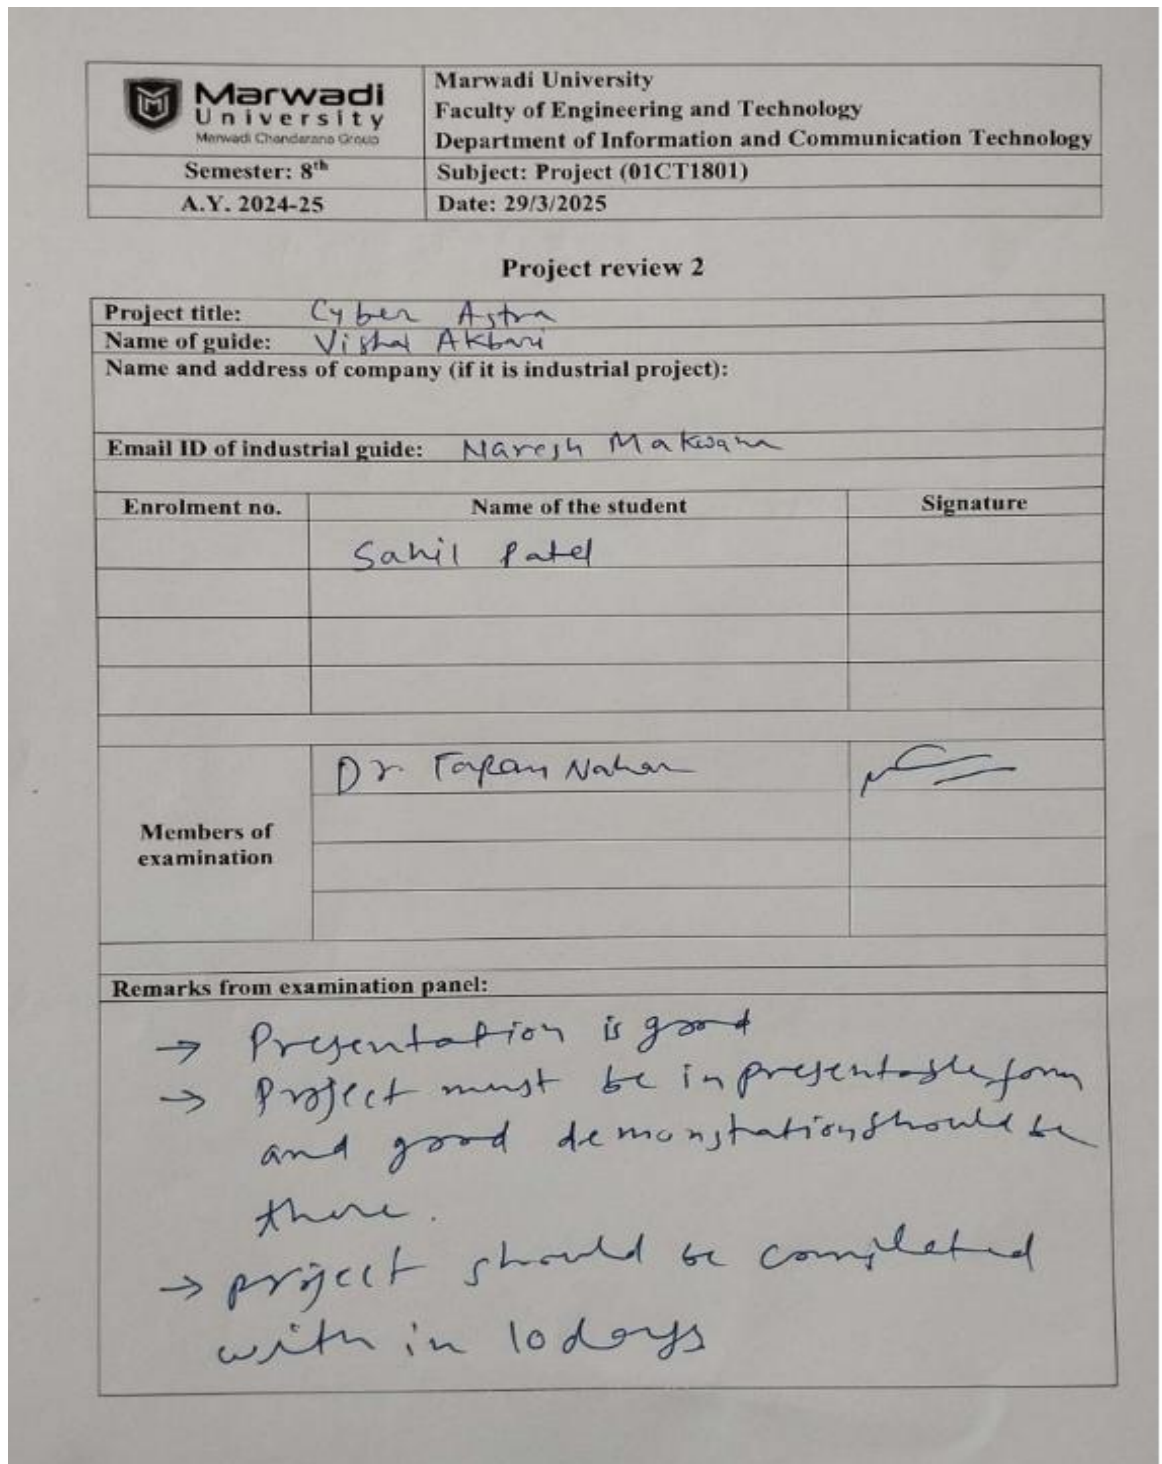 Marwadi
University
Marwadi Chandarana Group
Marwadi University
Faculty of Engineering and Technology
Department of Information and Communication Technology
Semester: 8th
Subject: Project (01CT1801)
A.Y. 2024-25
Date: 29/3/2025
Project review 2
Project title: Cyber Astra
Name of guide: Vishal Akbari
Name and address of company (if it is industrial project):
Email ID of industrial guide: Naresh Makwana
Enrolment no. Name of the student Signature
Sahil Patel
Dr. Tapan Nahar
Members of
examination
Remarks from examination panel:
→ Presentation is good
→ Project must be in presentable form
and good demonstration should be
there.
→ project should be completed
with in 10 days